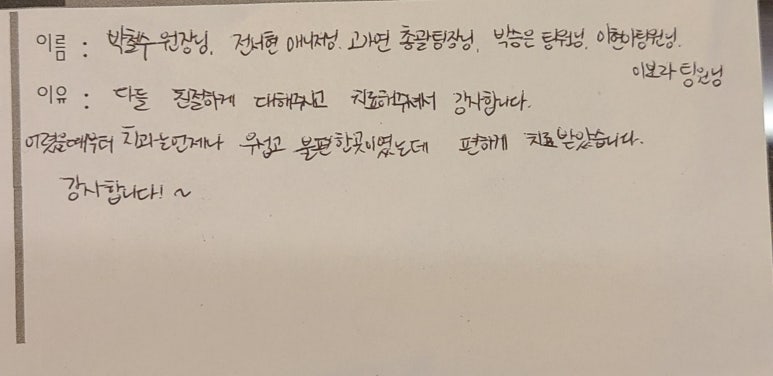 이름 : 박철수 원장님, 전서현 매니저님, 고가연 총괄팀장님, 박승은 팀원님, 이현아팀원님,
이보라 팀원님
이유 : 다들 친절하게 대해주시고 치료해주셔서 감사합니다.
어렸을때부터 치과는언제나 무섭고 불편한곳이였는데 편하게 치료받았습니다.
감사합니다! ~